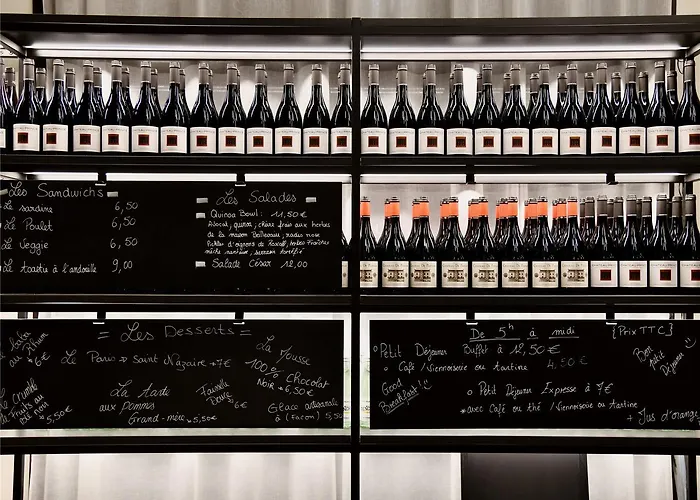 Les Sandwichs
Le sardine 6,50
Le Poulet 6,50
Le Veggie 6,50
Le toastie à l'andouille 9,00
Les Salades
Quinoa Bowl: 11,50€
Avocat, quinoa, chèvre frais aux herbes
de la maison Bailleaux, radis rose
Pickles d'oignons de Roscoff,
Salade César 12,00
= Les Desserts =
Le Paris Saint Nazaire 7€
La tarte
aux pommes
Grand-mère 5,50€
Faisselle
6€
La Mousse
100% Chocolat
Noir 6,50€
Glace artisanale
à (Facon) 5,50
Crumble
5,50€
De 5h à midi
{Prix TTC}
Petit Déjeuner Buffet à 12,50€
Café /Viennoiserie ou tartine 4,50€
Good
Breakfast!
Bon
petit
Déjeuner
Petit Déjeuner Expresse à 7€
*avec Café ou thé /Viennoiserie ou tartine
+ Jus d'orange